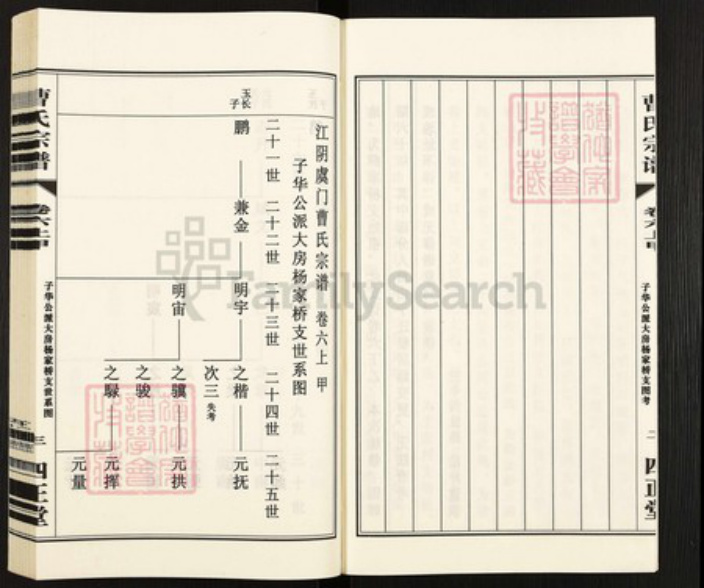 曹氏宗谱
卷六上甲
子华公派大房杨家桥支图考
二
四正堂
江阴虞门曹氏宗谱 卷六上 甲
子华公派大房杨家桥支世系图
二十一世 二十二世 二十三世 二十四世 二十五世
玉长子
鹏 兼金 明宇 之楷 元抚
次三失考
明宙 之骥 元拱
之骏
之騄 元挥
元量
曹氏宗谱
卷六上甲
子华公派大房杨家桥支世系图
三
四正堂
FamilySearch